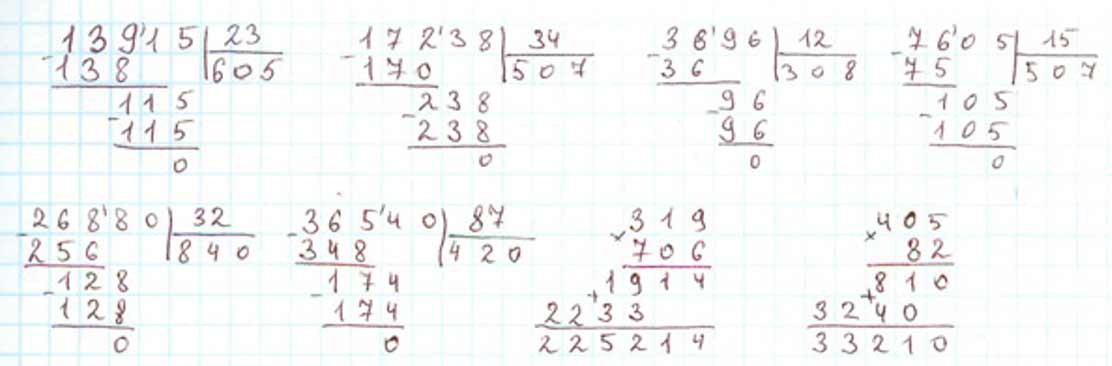 13915 23 17238 34 3696 12 7605 15
- 138 605 - 170 507 - 36 308 - 75 507
115 238 96 105
- 115 - 238 - 96 - 105
0 0 0 0
26880 32 36540 87 319 405
- 256 840 - 348 420 × 706 × 82
128 174 1914 810
- 128 - 174 + 2233 + 3240
0 0 225214 33210